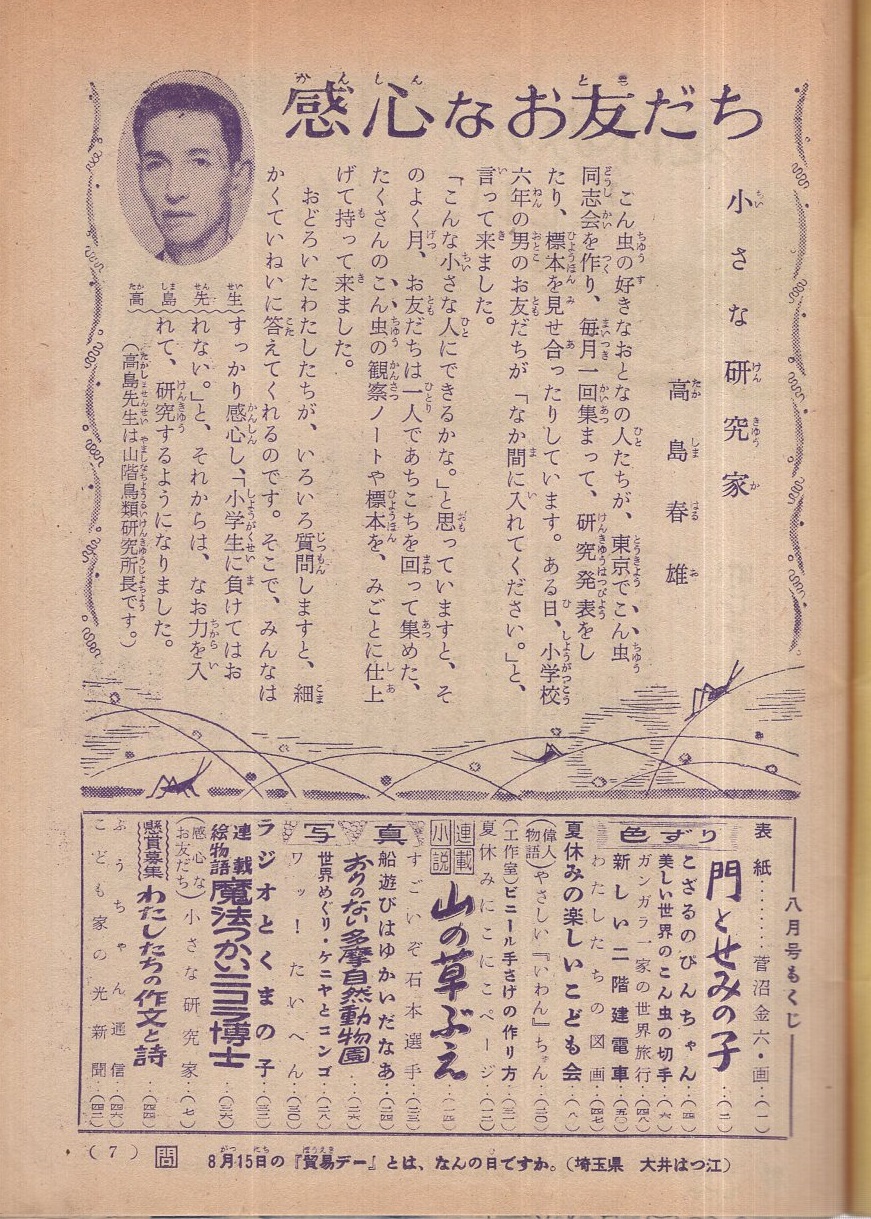 感心なお友だち
小さな研究家
高島春雄
こん虫の好きなおとなの人たちが、東京でこん虫
同志会を作り、毎月一回集まって、研究発表をし
たり、標本を見せ合ったりしています。ある日、小学校
六年の男のお友だちが「なか間に入れてください。」と、
言って来ました。
「こんな小さな人にできるかな。」と思っていますと、そ
のよく月、お友だちは一人であちこちを回って集めた、
たくさんのこん虫の観察ノートや標本を、みごとに仕上
げて持って来ました。
おどろいたわたしたちが、いろいろ質問しますと、細
かくていねいに答えてくれるのです。そこで、みんなは
すっかり感心し、「小学生に負けてはお
れない。」と、それからは、なお力を入
れて、研究するようになりました。
(高島先生は山階鳥類研究所長です。)
高島先生
八月号もくじ
表紙……菅沼金六・画…(一)
色ずり
門とせみの子…(二)
こざるのぴんちゃん…(四)
美しい世界のこん虫の切手…(六)
ガンガラ一家の世界旅行…(四八)
新しい二階建電車…(五〇)
わたしたちの図画…(四七)
夏休みの楽しいこども会…(八)
(偉人物語)やさしい『いわん』ちゃん…(二〇)
(工作室)ビニール手さげの作り方…(三一)
夏休みにこにこページ…(一二)
連載小説 山の草ぶえ…(一五)
写真
すごいぞ石本選手…(二三)
船遊びはゆかいだなあ…(二四)
おりのない多摩自然動物園…(二六)
世界めぐり・ケニヤとコンゴ…(二八)
ワッ!たいへん…(三〇)
ラジオとくまの子…(三二)
連載絵物語 魔法つかいニコラ博士…(三六)
(感心なお友だち)小さな研究家…(七)
懸賞募集 わたしたちの作文と詩…(四四)
ぷうちゃん通信…(四六)
こども家の光新聞…(四二)
(7)
問 8月15日の『貿易デー』とは、なんの日ですか。(埼玉県 大井はつ江)